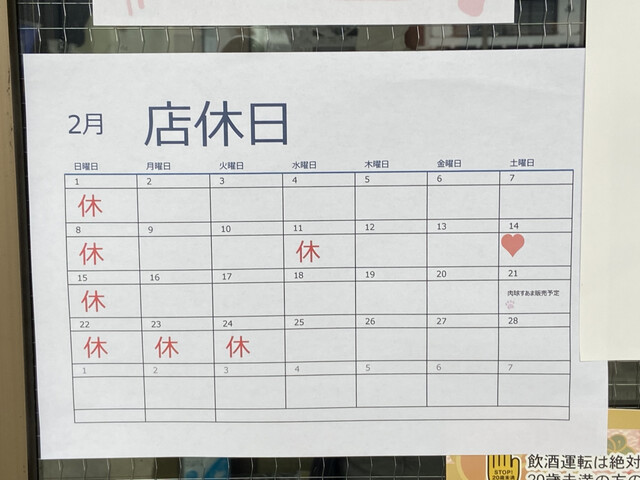 2月 店休日
日曜日 月曜日 火曜日 水曜日 木曜日 金曜日 土曜日
1 2 3 4 5 6 7
休
8 9 10 11 12 13 14
休 休
15 16 17 18 19 20 21
休 肉球すあま販売予定
22 23 24 25 26 27 28
休 休 休
1 2 3 4 5 6 7
飲酒運転は絶対
STOP!
20歳未満
20歳未満の方の